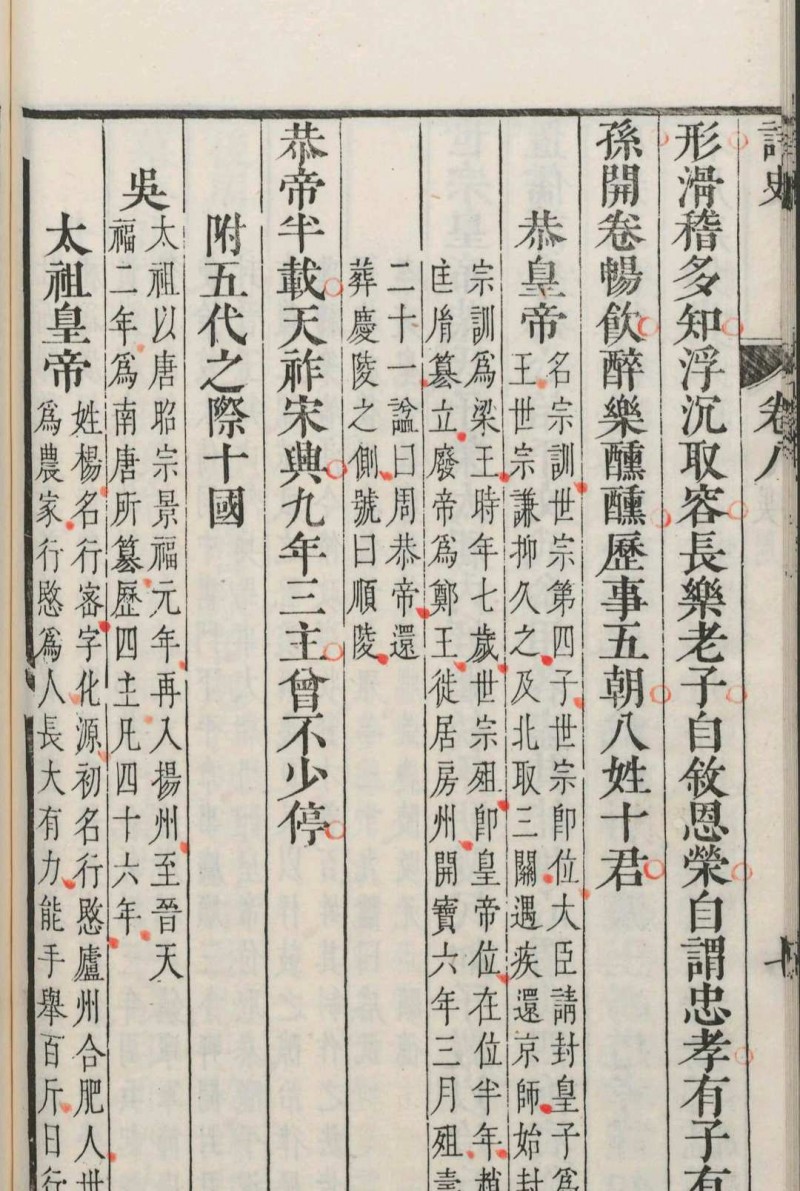 卷八
形滑稽多知浮沉取容長樂老子自敘恩榮自謂忠孝有子有
孫開卷暢飲醉樂醺醺歷事五朝八姓十君
恭皇帝
名宗訓世宗第四子世宗卽位大臣請封皇子爲
王世宗謙抑久之及北取三關遇疾還京師始封
宗訓爲梁王時年七歲世宗殂卽皇帝位在位半年趙
匡胤篡立廢帝爲鄭王徙居房州開寶六年三月殂壽
二十一諡曰周恭帝還
葬慶陵之側號曰順陵
恭帝半載天祚宋興九年三主曾不少停
附五代之際十國
吳
太祖以唐昭宗景福元年再入揚州至晉天
福二年爲南唐所篡歷四主凡四十六年
太祖皇帝
姓楊名行密字化源初名行愍廬州合肥人世
爲農家行愍爲人長大有力能手舉百斤日行